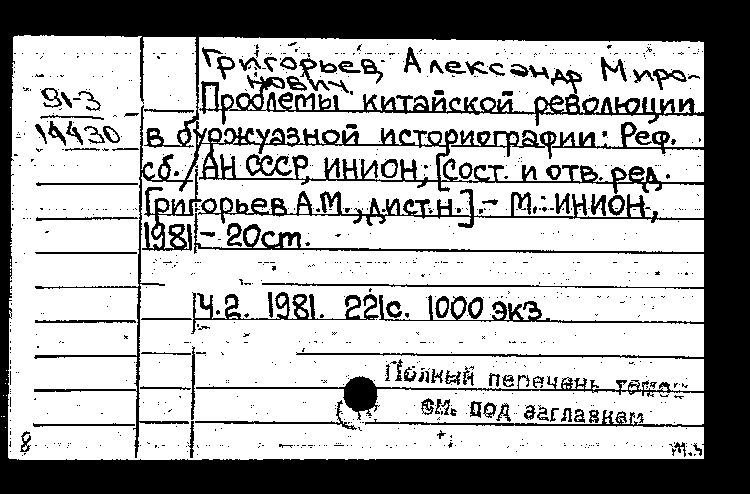 Григорьев, Александр Миро-
нович.
81-3
14430
Проблемы китайской революции
в буржуазной историографии: Реф.
сб./АН СССР, ИНИОН; [Сост. и отв. ред.
Григорьев А.М., д.ист.н.]. - М.: ИНИОН,
1981 - 20см.
Ч.2. 1981. 221с. 1000 экз.
Полный перечень томов
см. под заглавием
8